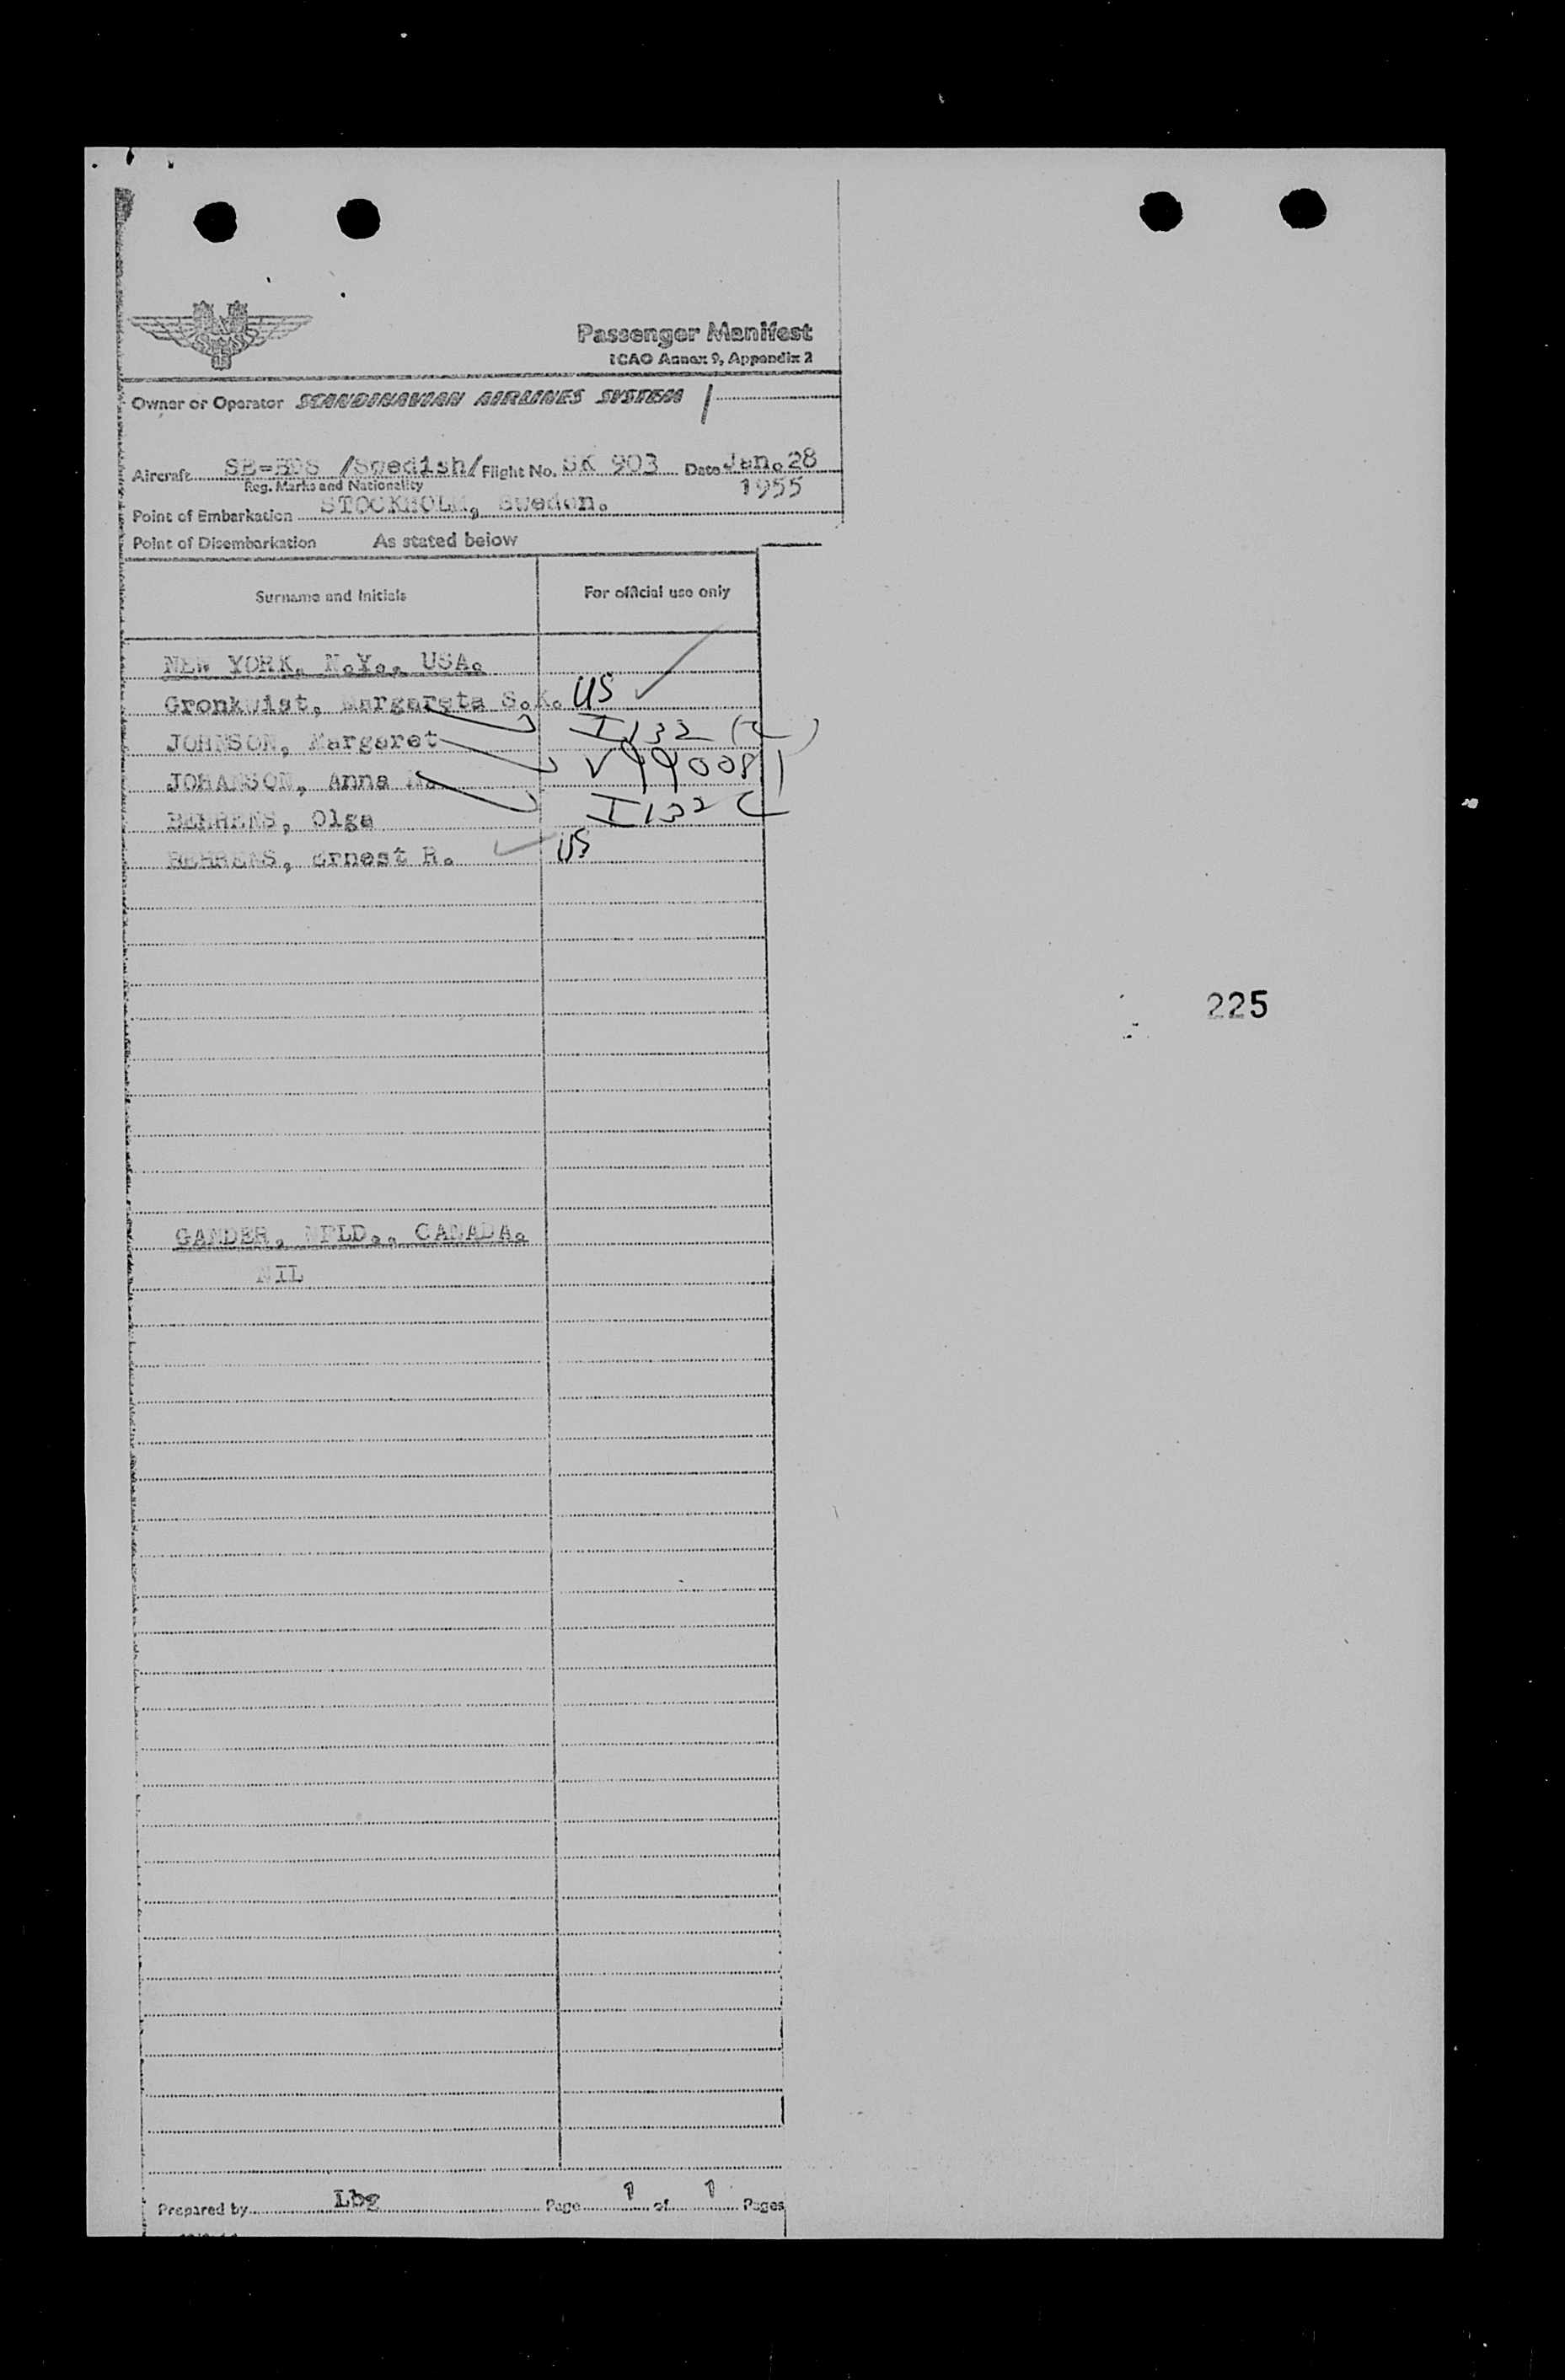 Passenger Manifest
ICAO Annex 9, Appendix 2
Owner or Operator SCANDINAVIAN AIRLINES SYSTEM
Aircraft /Swedish/ Flight No. SK 903 Date Jan. 28
Reg. Marks and Nationality 1955
Point of Embarkation STOCKHOLM, Sweden.
Point of Disembarkation As stated below
Surname and Initials For official use only
NEW YORK, N.Y., USA.
Gronkwist, Margareta S.K. US
JOHNSON, Margaret I132
JOHANSON, Anna
BEHRENS, Olga I132
BEHRENS, Ernest R. US
225
GANDER, NFLD., CANADA.
NIL
Prepared by Lbg Page 1 of 1 Pages